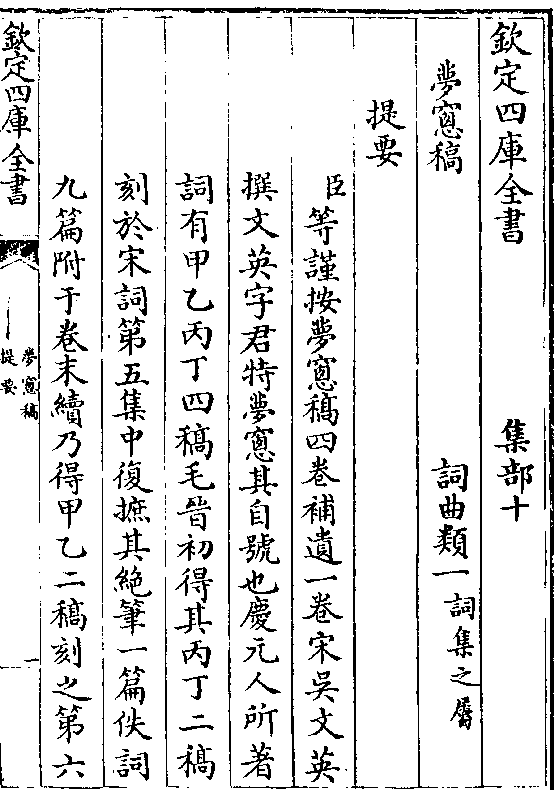 欽定四庫全書　　集部十
夢窻稿　　詞曲類一詞集之屬
提要
臣等謹按夢窻稿四卷補遺一卷宋吳文英
撰文英字君特夢窻其自號也慶元人所著
詞有甲乙丙丁四稿毛晉初得其丙丁二稿
刻於宋詞第五集中復摭其絶筆一篇佚詞
九篇附于卷末續乃得甲乙二稿刻之第六
欽定四庫全書
夢窻稿
提要
一